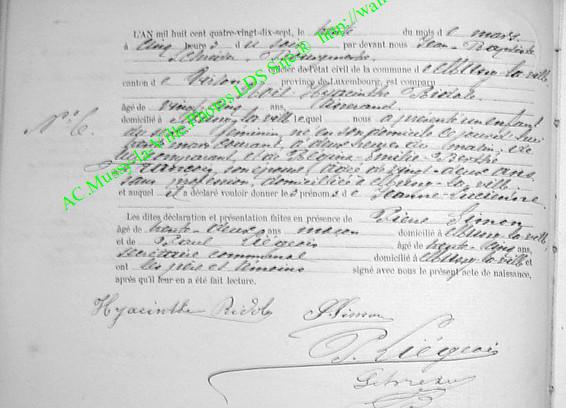 L'AN mil huit cent quatre-vingt-dix-sept, le trente du mois de mars
à cinq heures du soir par devant nous Jean-Baptiste
officier de l'état civil de la commune de Mussy-la-ville
canton de Virton province de Luxembourg, est comparu
Hyacinthe Ridole
âgé de vingt ans,
domicilié à Mussy-la-ville lequel nous a présenté un enfant
de sexe féminin, né en son domicile ce jourd'hui
trente mars courant, à deux heures du matin, de
lui comparant, et de Régina-Emilie-Berthe
François, son épouse, âgée de vingt-deux ans,
sans profession, domiciliée à Mussy-la-ville
et auquel il a déclaré vouloir donner les prénoms de Jeanne-Lucienne
Les dites déclaration et présentation faites en présence de Pierre Simon
âgé de trente-deux ans, maçon domicilié à Mussy-la-ville
et de Paul Liégeois âgé de trente ans,
secrétaire communal domicilié à Mussy-la-ville et
ont les père et témoins signé avec nous le présent acte de naissance,
après qu'il leur en a été fait lecture.
N° 6.
Hyacinthe Ridole P. Simon
P. Liégeois
AC.Mussy-la-Ville Photos LDS Site @ http://wan